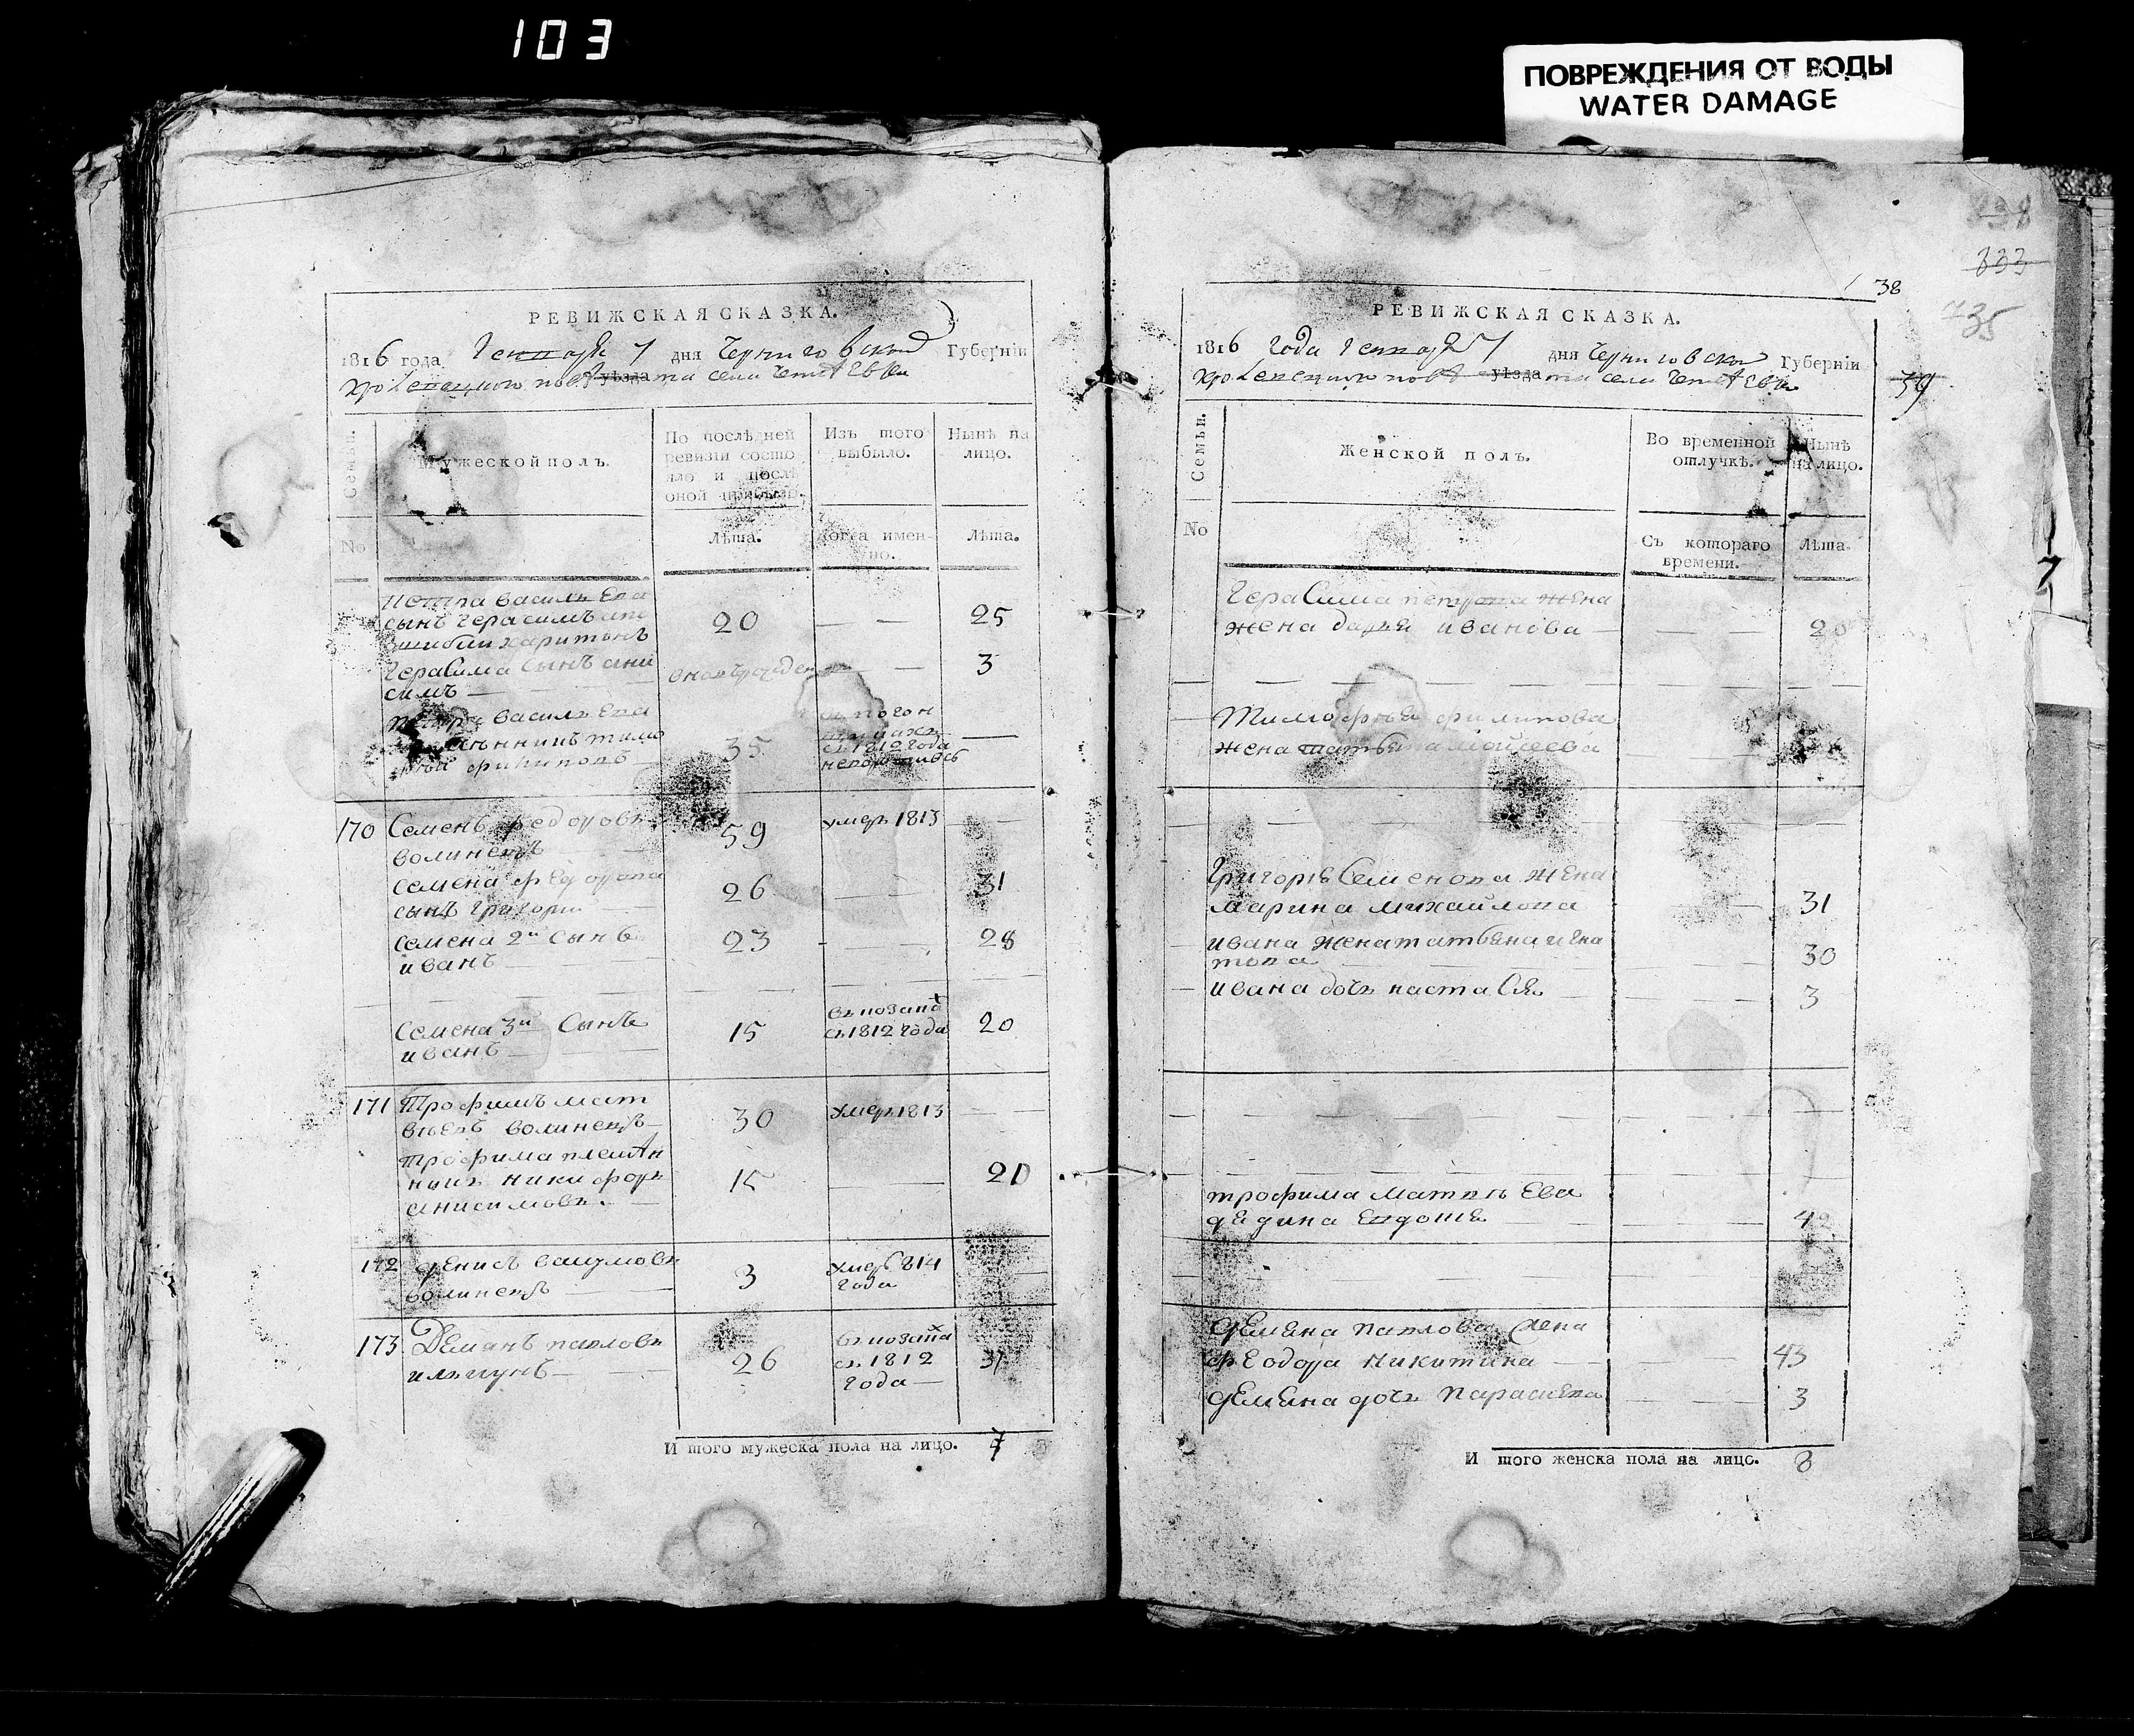 103
ПОВРЕЖДЕНИЯ ОТ ВОДЫ
WATER DAMAGE
РЕВИЖСКАЯ СКАЗКА.
1816 года Генваря 7 дня Черниговской Губерніи
кролевецкого уѣзда села
Семьи.
No
Мужеской полъ.
По послѣдней
ревизіи состо
яло и послѣ
оной прибыло.
Лѣта.
Изъ того
выбыло.
Когда имен-
но.
Нынѣ на
лицо.
Лѣта.
Петра Васильева
сынъ Герасимъ
харитонъ
20
25
Герасима сынъ ани
симъ
3
Васильева
тимо
фей филиповъ
35
съ 1812 года
170 Семенъ федоровъ
волинецъ
59
умеръ 1813
семена федорова
сынъ григорий
26
31
семена 2й сынъ
иванъ
23
28
Семена 3й Сынъ
иванъ
15
съ 1812 года
20
171 Трофимъ мат
вѣевъ волинецъ
30
умеръ 1813
трофима племян
никъ никифоръ
анисимовъ.
15
20
172 денисъ
волинецъ
3
умеръ 814
года
173 Демянъ павловъ
26
съ 1812
года
31
И того мужеска пола на лицо. 7
38
333
735
РЕВИЖСКАЯ СКАЗКА.
1816 года Генваря 7 дня Черниговской Губерніи
кролевецкого уѣзда села
39
Семьи.
No
Женской полъ.
Во временной
отлучкѣ.
Съ котораго
времени.
Нынѣ
на лицо.
Лѣта.
7
Герасима петрова жена
жена дарья иванова
20
Тимофея филипова
жена татьяна мойсеева
Григорія Семенова жена
марина михайлова
31
ивана жена татьяна игна
това
30
ивана дочь настася
3
трофима матвѣева
дядина евдокія
42
демяна павлова жена
феодора никитина
43
демяна дочь параскева
3
И того женска пола на лицо. 8